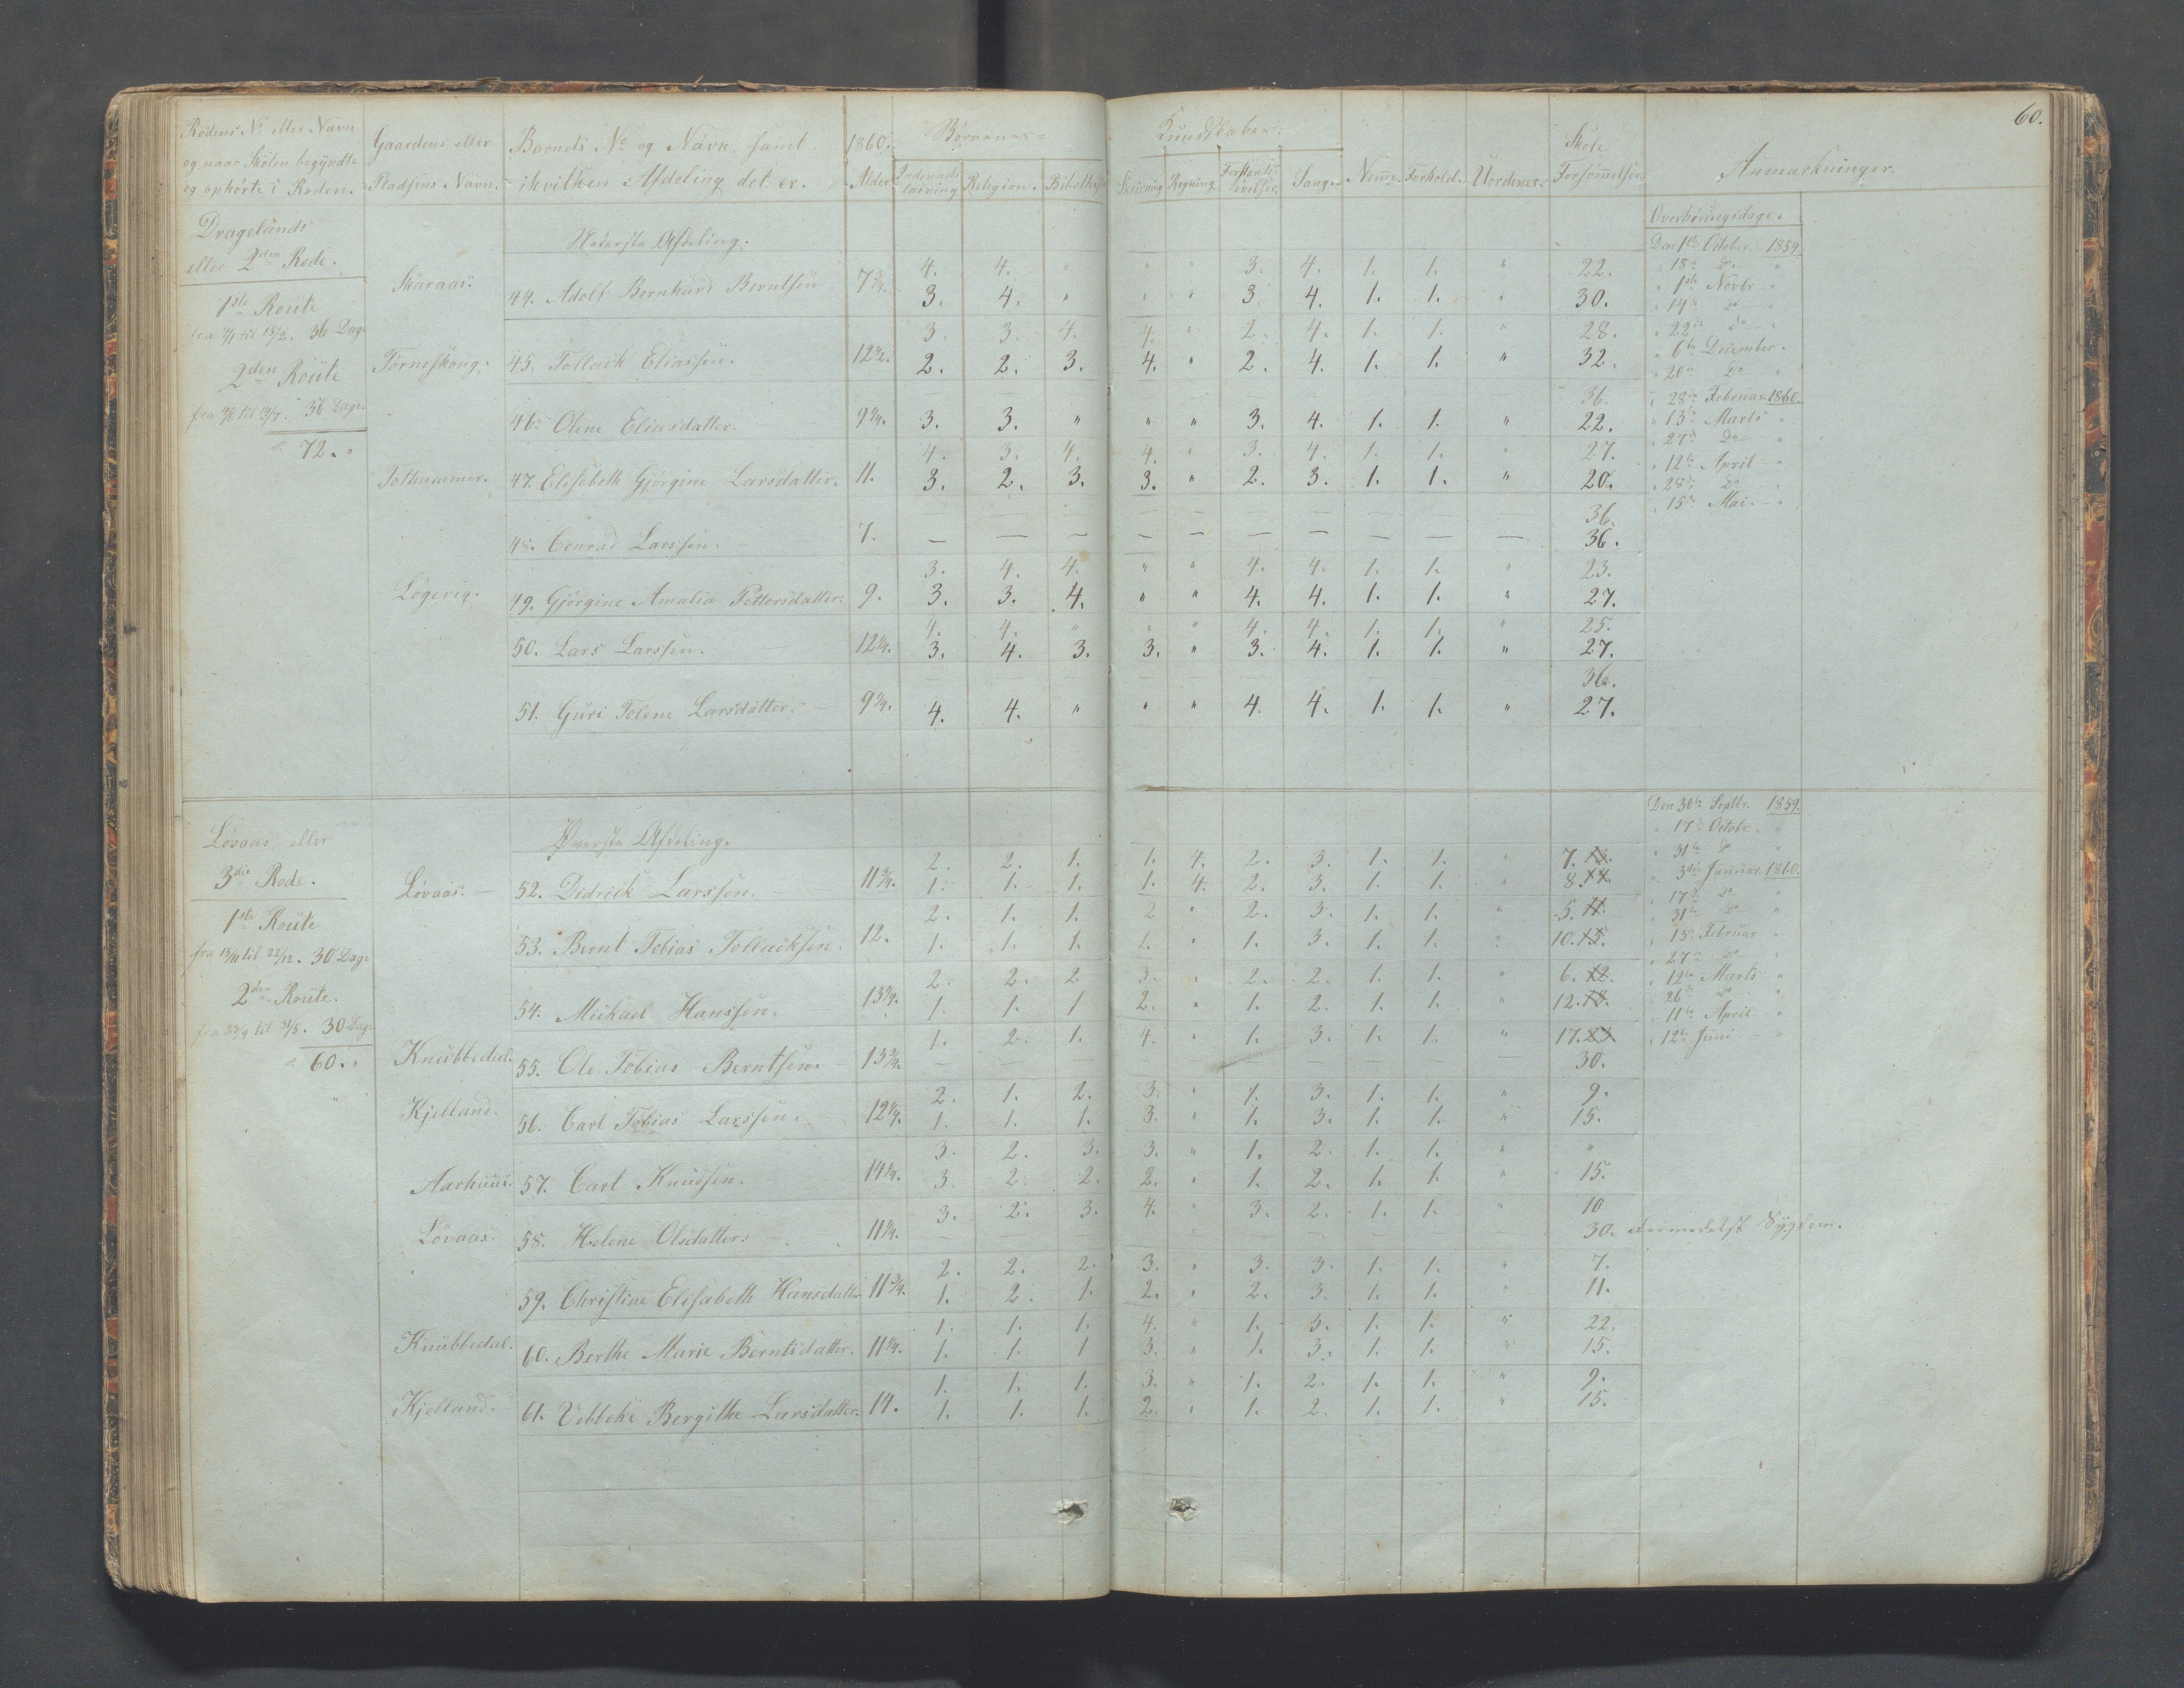 60.
Rodens No. eller Navn og naar Skolen begyndte og ophørte i Roden. Gaardens eller Pladsens Navn. Barnets No. og Navn, samt i hvilken Afdeling det er. 1860. Alder Børnenes Kundskaber. Indenadslæsning Religion. Bibelhist. Skrivning Regning. Forstandsøvelser. Sang. Nemme. Forhold. Uordener. Skole Forsømmelser. Anmærkninger.
Dragelands eller 2den Rode.
1ste Route
36 Dage
2den Route
36 Dage.
72. "
Nederste Afdeling.
4. 4. " " " 3. 4. 1. 1. " 22.
Skaraas. 44. Adolf Bernhard Berntsen 7 3/4. 3. 4. " " " 3 4. 1. 1. " 30.
3. 3. 4. 4. " 2. 4. 1. 1. " 28.
Torneskoug. 45. Tollack Eliassen. 12 1/2. 2. 2. 3. 4. " 2. 4. 1. 1. " 32.
36.
46. Olene Eliasdatter. 9 1/4. 3. 3. " " " 3. 4. 1. 1. " 22.
4. 3. 4. 4. " 3. 4. 1. 1. " 27.
Tothammer. 47. Elisabeth Gjørgine Larsdatter. 11. 3. 2. 3. 3. " 2. 3. 1. 1. " 20.
36.
48. Conrad Larssen. 7. — — — — — — — — — — 36.
3. 4. 4. " " 4. 4. 1. 1. " 23.
Løgevig. 49. Gjørgine Amalia Pettersdatter. 9. 3. 3. 4. " " 4. 4. 1. 1. " 27.
4. 4. " " " 4. 4. 1. 1. " 25.
50. Lars Larssen. 12 1/4. 3. 4. 3. 3. " 3. 4. 1. 1. " 27.
36.
51. Guri Tolene Larsdatter. 9 1/4. 4. 4. " " " 4. 4. 1. 1. " 27.
Overhøringsdage.
Den 1ste October. 1859.
" 18de Do "
" 1ste Novbr "
" 14de Do "
" 22de Do "
" 6te December "
" 20de Do "
" 28de Februar 1860.
" 13de Marts "
" 27de Do "
" 12te April "
" 28de Do "
" 15de Mai. "
Løvaas, eller 3die Rode.
1ste Route
fra 13/11 til 22/12. 30 Dage
2den Route.
30 Dage
60. "
Øverste Afdeling.
2. 2. 1. 1. 4. 2. 3. 1. 1. " 7. 13.
Løvaas. 52. Didrick Larssen. 11 3/4. 1. 1. 1. 1. 4. 2. 3. 1. 1. " 8. 14.
2. 1. 1. 2 " 2. 3. 1. 1. " 5. 11.
53. Bernt Tobias Tollacksen. 12. 1. 1. 1. 1. " 1. 3. 1. 1. " 10. 15.
2. 2. 2 3. " 2. 2. 1. 1. " 6. 12.
54. Mickael Hanssen. 13 1/4. 1. 1. 1 2. " 1. 2. 1. 1. " 12. 18.
1. 2. 1. 4. " 1. 3. 1. 1. " 17. 23
Knubbedal. 55. Ole Tobias Berntsen. 13 3/4. — — — — — — 30.
2. 1. 2. 3. " 1. 3. 1. 1. " 9.
Kjelland. 56. Carl Tobias Larssen. 12 1/4. 1. 1. 1. 3. " 1. 3. 1. 1. " 15.
3. 2. 3. 3. " 1. 2. 1. 1. " "
Aarhuus. 57. Carl Knudsen. 14 1/4. 3. 2. 2. 2. " 1. 2. 1. 1. " 15.
3. 2. 3. 4. " 3. 2. 1. 1. " 10
Løvaas. 58. Helene Olsdatter. 11 1/4. — — — — — 30. Formedelst Sygdom.
2. 2. 2. 3. " 3. 3. 1. 1. " 7.
59. Christine Elisabeth Hansdatter 11 3/4. 1. 2. 1. 2. " 2. 3. 1. 1. " 11.
1. 1. 1. 4. " 1. 3. 1. 1. " 22.
Knubbedal. 60. Berthe Marie Berntsdatter. 11 1/4. 1. 1. 1 3. " 1. 3. 1. 1. " 15.
1. 1. 1. 3. " 1. 2. 1. 1. " 9.
Kjelland. 61. Vebbeke Bergithe Larsdatter. 14. 1. 1. 1. 2. " 1. 2. 1. 1. " 15.
Den 30te Septbr. 1859.
" 17de Octobr. "
" 31te Do "
" 3die Januar. 1860.
" 17de Do "
" 31te Do "
" 13de Februar "
" 27de Do "
" 12te Marts "
" 26de Do "
" 11te April "
" 12te Juni "